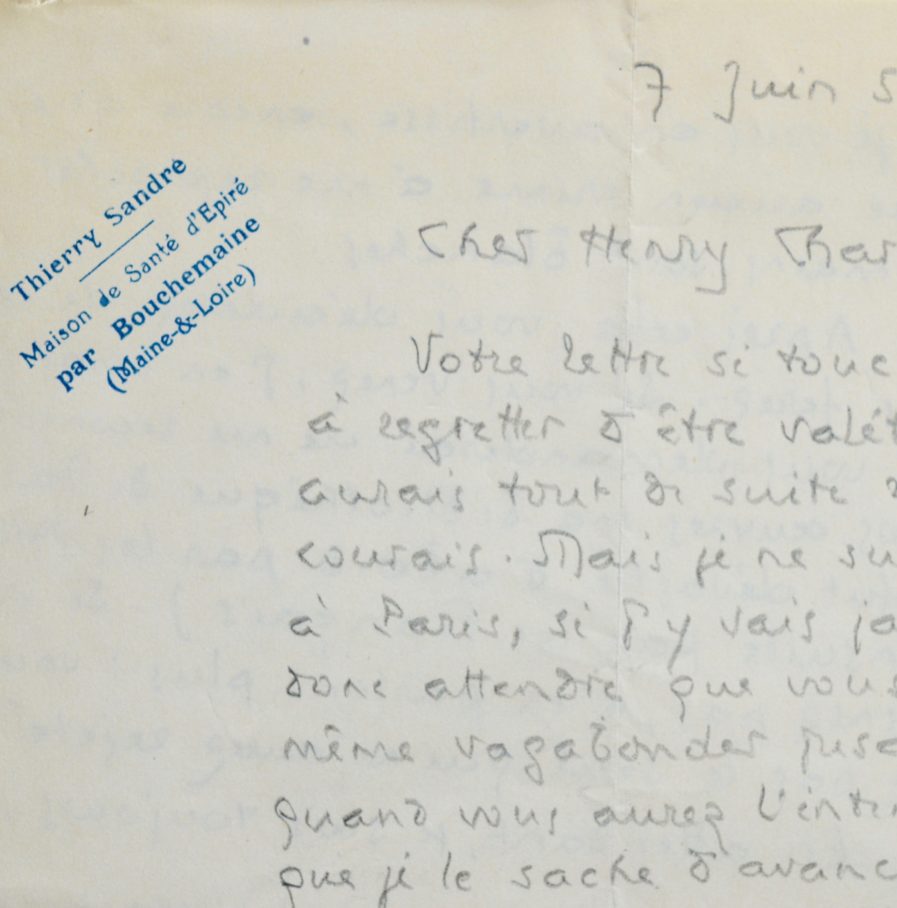 Thierry Sandre
Maison de Santé d'Epiré
par Bouchemaine
(Maine-&-Loire)
7 Juin 5
Cher Henry Char
Votre lettre si touc
à regretter d'être valét
aurais tout de suite
courais. Mais je ne su
à Paris, si j'y vais ja
donc attendre que vous
même vagabonder jusq
quand vous aurez l'inten
que je le sache d'avanc